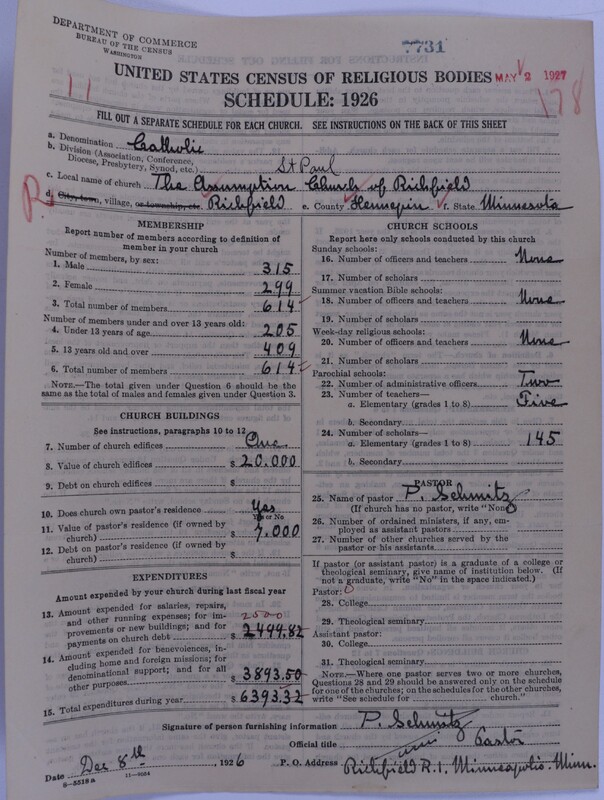 DEPARTMENT OF COMMERCE
BUREAU OF THE CENSUS
WASHINGTON
731
UNITED STATES CENSUS OF RELIGIOUS BODIES
MAY 2 1927
SCHEDULE: 1926
11
178
FILL OUT A SEPARATE SCHEDULE FOR EACH CHURCH. SEE INSTRUCTIONS ON THE BACK OF THIS SHEET
a. Denomination Catholic
b. Division (Association, Conference,
Diocese, Presbytery, Synod, etc.) St Paul
c. Local name of church The Assumption Church of Richfield
R.
d. City, town, village, or township, etc. Richfield e. County Hennepin f. State Minnesota
MEMBERSHIP
Report number of members according to definition of
member in your church
Number of members, by sex:
1. Male 315
2. Female 299
3. Total number of members 614
Number of members under and over 13 years old:
4. Under 13 years of age 205
5. 13 years old and over 409
6. Total number of members 614
NOTE.—The total given under Question 6 should be
the same as the total of males and females given under Question 3.
CHURCH BUILDINGS
See instructions, paragraphs 10 to 12
7. Number of church edifices One
8. Value of church edifices $ 20.000
9. Debt on church edifices $
10. Does church own pastor's residence Yes
Yes or No
11. Value of pastor's residence (if owned by
church) $ 7.000
12. Debt on pastor's residence (if owned by
church) $
EXPENDITURES
Amount expended by your church during last fiscal year
13. Amount expended for salaries, repairs,
and other running expenses; for im-
provements or new buildings; and for
payments on church debt $ 2499.82
2500
14. Amount expended for benevolences, in-
cluding home and foreign missions; for
denominational support; and for all
other purposes $ 3893.50
15. Total expenditures during year $ 6393.32
CHURCH SCHOOLS
Report here only schools conducted by this church
Sunday schools:
16. Number of officers and teachers None
17. Number of scholars
Summer vacation Bible schools:
18. Number of officers and teachers None
19. Number of scholars
Week-day religious schools:
20. Number of officers and teachers None
21. Number of scholars
Parochial schools:
22. Number of administrative officers Two
23. Number of teachers—
a. Elementary (grades 1 to 8) Five
b. Secondary
24. Number of scholars—
a. Elementary (grades 1 to 8) 145
b. Secondary
PASTOR
25. Name of pastor P. Schmitz
(If church has no pastor, write "None")
26. Number of ordained ministers, if any, em-
ployed as assistant pastors
27. Number of other churches served by the
pastor or his assistants
If pastor (or assistant pastor) is a graduate of a college or
theological seminary, give name of institution below. (If
not a graduate, write "No" in the space indicated.)
Pastor: 0
28. College
29. Theological seminary
Assistant pastor:
30. College
31. Theological seminary
NOTE.—Where one pastor serves two or more churches,
Questions 28 and 29 should be answered only on the schedule
for one of the churches; on the schedules for the other churches,
write "See schedule for church."
Signature of person furnishing information P. Schmitz
Official title Pastor
Date Dec 8th, 1926 P. O. Address Richfield R.1. Minneapolis. Minn.
8-5518a 11-9054